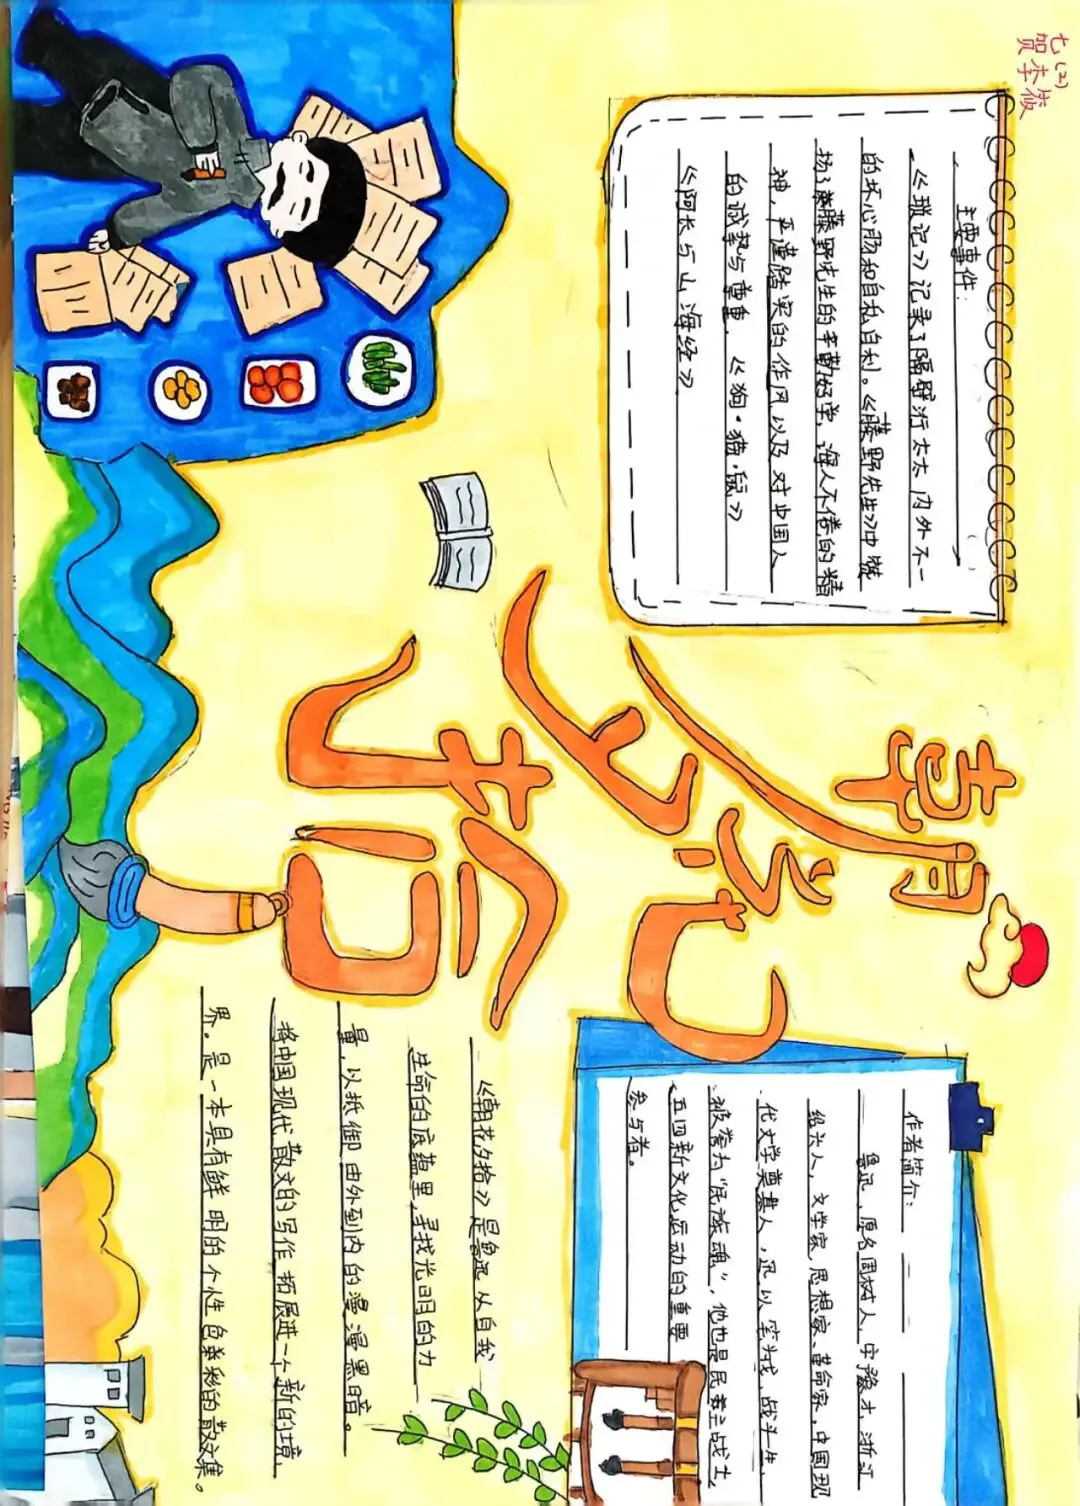 七(2)
贺李筱
朝花夕拾
主要事件:
《琐记》记录了隔壁衍太太内外不一
的坏心肠和自私自利。《藤野先生》中赞
扬了藤野先生的辛勤好学,诲人不倦的精
神,严谨踏实的作风以及对中国人
的诚挚与尊重. 《狗·猫·鼠》
《阿长与山海经》
作者简介:
鲁迅,原名周树人,字豫才,浙江
绍兴人,文学家,思想家、革命家,中国现
代文学奠基人,迅以笔为戎,战斗一生,
被誉为"民族魂",他也是民主战士,
五四新文化运动的重要
参与者。
《朝花夕拾》是鲁迅从自我
生命的底蕴里,寻找光明的力
量,以抵御由外到内的漫漫黑暗。
将中国现代散文的写作拓展进一个新的境
界。是一本具有鲜明的个性色彩的散文集。